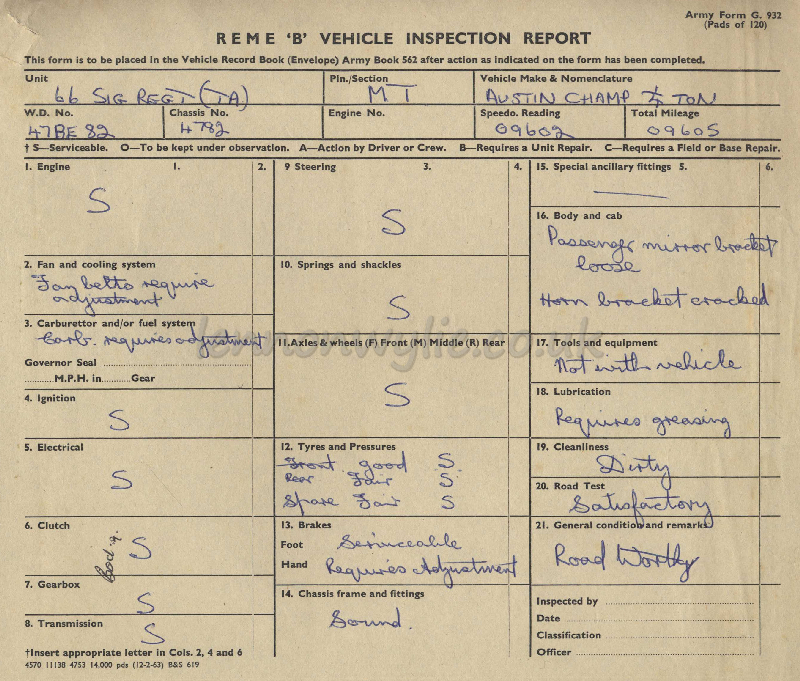 Army Form G. 932
(Pads of 120)
REME 'B' VEHICLE INSPECTION REPORT
This form is to be placed in the Vehicle Record Book (Envelope) Army Book 562 after action as indicated on the form has been completed.
Unit
66 SIG REGT (TA)
Pln./Section
MT
Vehicle Make & Nomenclature
AUSTIN CHAMP ¼ TON
W.D. No.
47BE 82
Chassis No.
4782
Engine No.
Speedo. Reading
09602
Total Mileage
09605
† S—Serviceable. O—To be kept under observation. A—Action by Driver or Crew. B—Requires a Unit Repair. C—Requires a Field or Base Repair.
1. Engine 1. 2.
S
2. Fan and cooling system
Fan belts require
adjustment
3. Carburettor and/or fuel system
Carb. requires adjustment
Governor Seal
M.P.H. in Gear
4. Ignition
S
5. Electrical
S
6. Clutch
S
7. Gearbox
S
8. Transmission
S
†Insert appropriate letter in Cols. 2, 4 and 6
4570 11138 4753 14,000 pds (12-2-63) B&S 619
9 Steering 3. 4.
S
10. Springs and shackles
S
11. Axles & wheels (F) Front (M) Middle (R) Rear
S
12. Tyres and Pressures
Front good S.
Rear Fair S
Spare Fair S
13. Brakes
Foot Serviceable
Hand Requires Adjustment
14. Chassis frame and fittings
Sound.
15. Special ancillary fittings 5. 6.
16. Body and cab
Passenger mirror bracket
loose
Horn bracket cracked
17. Tools and equipment
Not with vehicle
18. Lubrication
Requires greasing
19. Cleanliness
Dirty
20. Road Test
Satisfactory
21. General condition and remarks
Road Worthy
Inspected by
Date
Classification
Officer
lennonwylie.co.uk